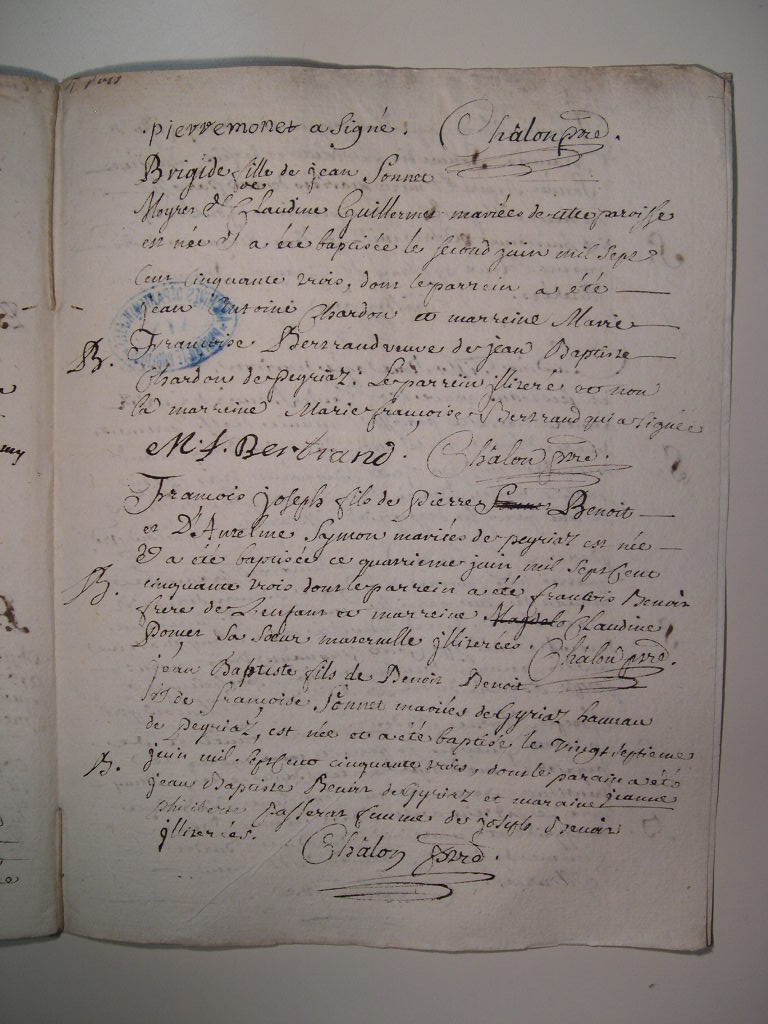 pierremonet a signé. Châlon pre.
Brigide fille de jean Sonnet
Moyret & de Claudine Guillermet mariées de cette paroisse
est née & a été baptisée le second juin mil sept
Cent cinquante trois, dont le parrein a été
jean Antoine Chardon et marreine Marie
B. Françoise Bertrand veuve de jean Baptiste
Chardon de Peyriaz. Le parrein illiteré et non
la marreine Marie françoise Bertrand qui a signée
M. f. Bertrand. Châlon pre.
François joseph fils de Pierre Benoit
et D'Anzelme Saymon mariées de peyriaz est née
& a été baptisée ce quatrieme juin mil Sept Cent
B. cinquante trois dont le parrein a été françois Benoit
frere de L'enfant et marreine Claudine
Sa Sœur maternelle illiterées. Châlon pre.
jean Baptiste fils de Benoit Benoit
& de françoise Sonnet mariées de Gyriaz hameau
de Peyriaz, est née et a été baptisé le vingt septieme
B. juin mil Sept Cent cinquante trois, dont le parain a été
jean Baptiste Benoit de Gyriaz et maraine jeanne
philiberte Passerat femme de joseph Benoit
illiterées. Châlon pre.